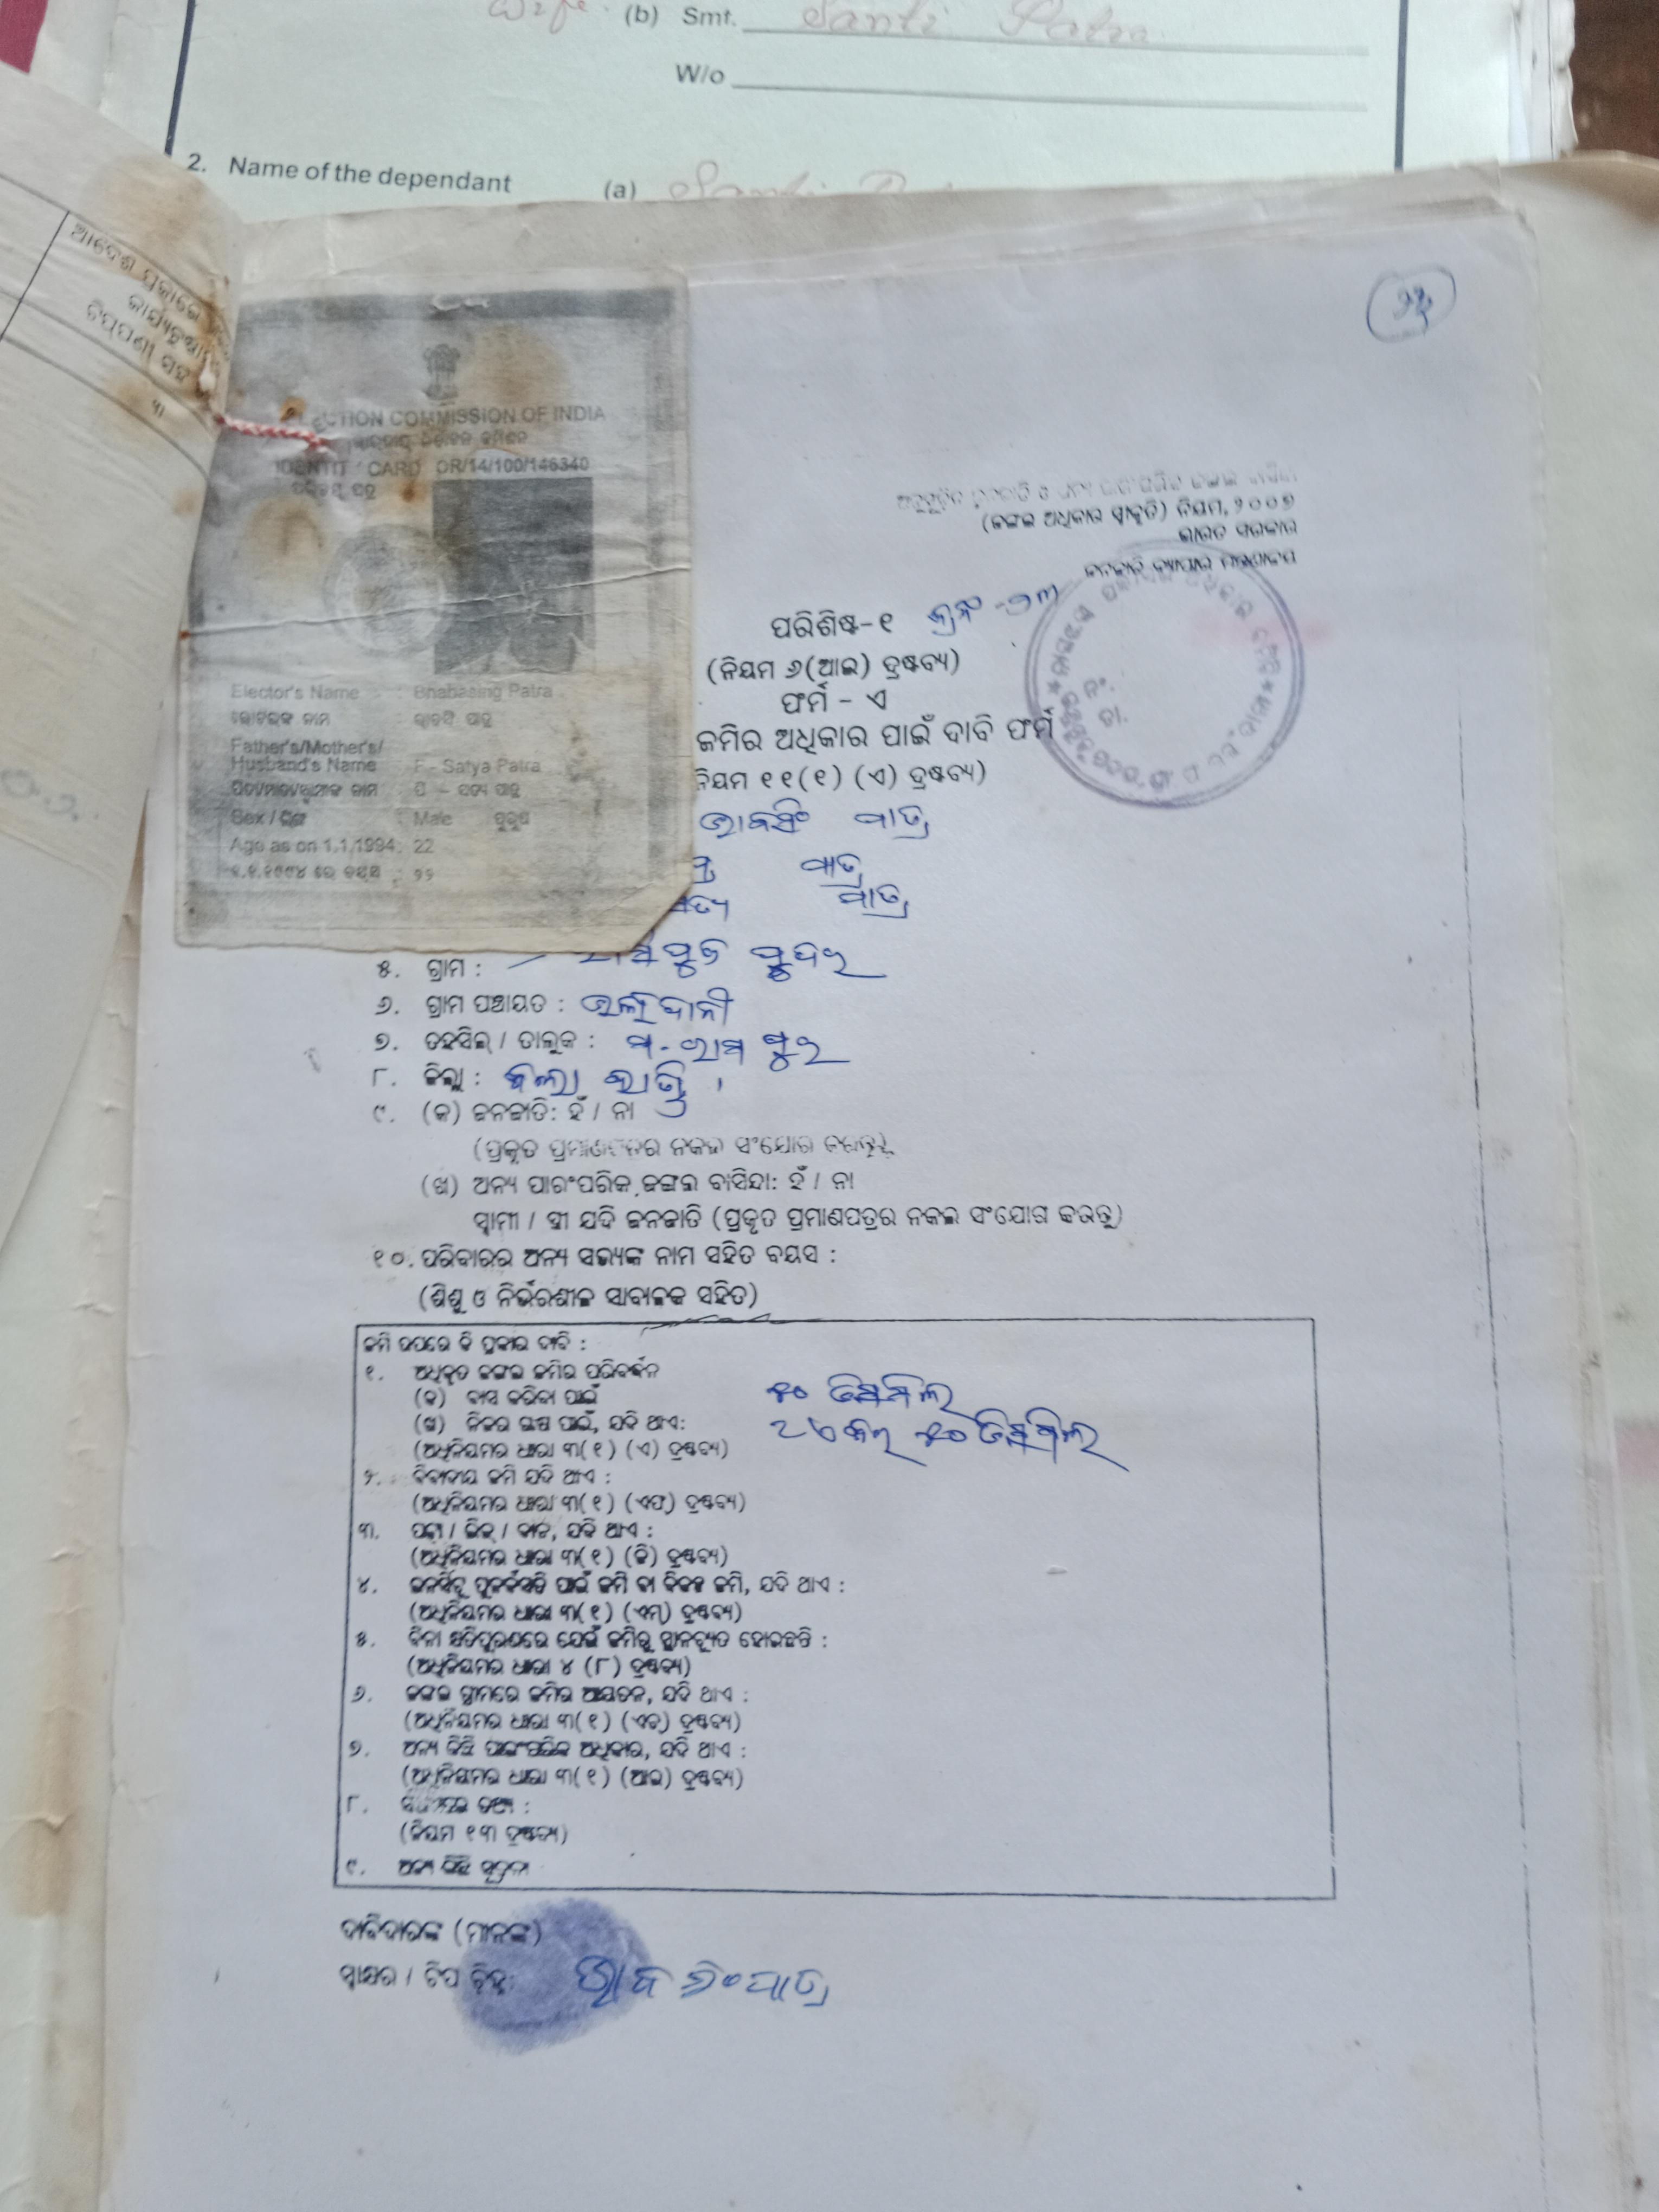 Wife. (b) Smt. Santi Patra
W/o
2. Name of the dependant (a) Santi
ଆଦେଶ ପ୍ରକାରେ
ଟିପ୍ପଣୀ ସହ
୩
ELECTION COMMISSION OF INDIA
IDENTITY CARD OR/14/100/146340
ପରିଚୟ ପତ୍ର
Elector's Name : Bhabasing Patra
ଭୋଟରଙ୍କ ନାମ : ଭାବସିଂ ପାତ୍ର
Father's/Mother's/
Husband's Name F - Satya Patra
ପିତା/ମାତା/ସ୍ୱାମୀଙ୍କ ନାମ ପି - ସତ୍ୟ ପାତ୍ର
Sex / ଲିଙ୍ଗ : Male ପୁରୁଷ
Age as on 1.1.1994 : 22
୧.୧.୧୯୯୪ ରେ ବୟସ : ୨୨
(ଜଙ୍ଗଲ ଅଧିକାର ସ୍ୱୀକୃତି) ନିୟମ, ୨୦୦୭
ଭାରତ ସରକାର
ଜନଜାତି ବ୍ୟାପାର ମନ୍ତ୍ରଣାଳୟ
ପରିଶିଷ୍ଟ-୧
(ନିୟମ ୬(ଆଇ) ଦ୍ରଷ୍ଟବ୍ୟ)
ଫର୍ମ - ଏ
ଜମିର ଅଧିକାର ପାଇଁ ଦାବି ଫର୍ମ
ନିୟମ ୧୧(୧) (ଏ) ଦ୍ରଷ୍ଟବ୍ୟ)
ଭାବସିଂ ପାତ୍ର
ପାତ୍ର
ସତ୍ୟ ପାତ୍ର
୫. ଗ୍ରାମ :
୬. ଗ୍ରାମ ପଞ୍ଚାୟତ :
୭. ତହସିଲ୍ / ତାଲୁକ : ମ. ରାମପୁର
୮. ଜିଲ୍ଲା :
୯. (କ) ଜନଜାତି: ହଁ / ନା
(ପ୍ରକୃତ ପ୍ରମାଣପତ୍ରର ନକଲ ସଂଯୋଗ କରନ୍ତୁ)
(ଖ) ଅନ୍ୟ ପାରଂପରିକ ଜଙ୍ଗଲ ବାସିନ୍ଦା: ହଁ / ନା
ସ୍ୱାମୀ / ସ୍ତ୍ରୀ ଯଦି ଜନଜାତି (ପ୍ରକୃତ ପ୍ରମାଣପତ୍ରର ନକଲ ସଂଯୋଗ କରନ୍ତୁ)
୧୦. ପରିବାରର ଅନ୍ୟ ସଭ୍ୟଙ୍କ ନାମ ସହିତ ବୟସ :
(ଶିଶୁ ଓ ନିର୍ଭରଶୀଳ ସାବାଳକ ସହିତ)
ଜମି ଉପରେ କି ପ୍ରକାର ଦାବି :
୧. ଅଧିକୃତ ଜଙ୍ଗଲ ଜମିର ପରିବର୍ତ୍ତନ
(କ) ବାସ କରିବା ପାଇଁ ୫୦ ଡିସମିଲ
(ଖ) ନିଜର ଚାଷ ପାଇଁ, ଯଦି ଥାଏ: ୨ ଏକର ୫୦ ଡିସମିଲ
(ଅଧିନିୟମର ଧାରା ୩(୧) (ଏ) ଦ୍ରଷ୍ଟବ୍ୟ)
୨. ବିବାଦୀୟ ଜମି ଯଦି ଥାଏ :
(ଅଧିନିୟମର ଧାରା ୩(୧) (ଏଫ୍) ଦ୍ରଷ୍ଟବ୍ୟ)
୩. ପଟ୍ଟା / ଲିଜ୍ / ଦାନ, ଯଦି ଥାଏ :
(ଅଧିନିୟମର ଧାରା ୩(୧) (ଜି) ଦ୍ରଷ୍ଟବ୍ୟ)
୪. ଇନସିଟୁ ପୁନର୍ବସତି ପାଇଁ ଜମି ବା ବିକଳ୍ପ ଜମି, ଯଦି ଥାଏ :
(ଅଧିନିୟମର ଧାରା ୩(୧) (ଏମ୍) ଦ୍ରଷ୍ଟବ୍ୟ)
୫. ବିନା କ୍ଷତିପୂରଣରେ ଯେଉଁ ଜମିରୁ ସ୍ଥାନଚ୍ୟୁତ ହୋଇଛନ୍ତି :
(ଅଧିନିୟମର ଧାରା ୪ (୮) ଦ୍ରଷ୍ଟବ୍ୟ)
୬. ଜଙ୍ଗଲ ଗ୍ରାମରେ ଜମିର ଆୟତନ, ଯଦି ଥାଏ :
(ଅଧିନିୟମର ଧାରା ୩(୧) (ଏଚ୍) ଦ୍ରଷ୍ଟବ୍ୟ)
୭. ଅନ୍ୟ କିଛି ପାରଂପରିକ ଅଧିକାର, ଯଦି ଥାଏ :
(ଅଧିନିୟମର ଧାରା ୩(୧) (ଆଇ) ଦ୍ରଷ୍ଟବ୍ୟ)
୮.
(ନିୟମ ୧୩ ଦ୍ରଷ୍ଟବ୍ୟ)
୯. ଅନ୍ୟ କିଛି ସୂଚନା
ଦାବିଦାରଙ୍କ (ମାନଙ୍କ)
ସ୍ୱାକ୍ଷର / ଟିପ ଚିହ୍ନ: ଭାବସିଂ ପାତ୍ର